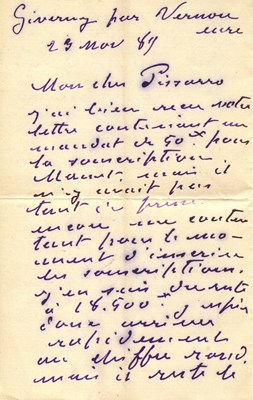 Giverny par Vernon
eure
23 Nov 89
Mon cher Pissarro
j'ai bien reçu votre
lettre contenant un
mandat de 50 f pour
la souscription
Manet mais il
n'y avait pas
tant
encore me conten
tant pour le mo
ment d'inscrire
les souscriptions.
j'en suis du reste
à 18.500 f j'espère
donc arriver
rapidement
au chiffre rond.
mais il reste le